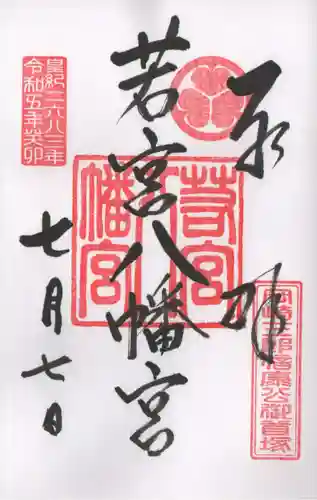 奉拝
岡崎三郎信康公御首塚
若宮八幡宮
若宮
八幡宮
皇紀二六八三年
令和五年癸卯
七月七日